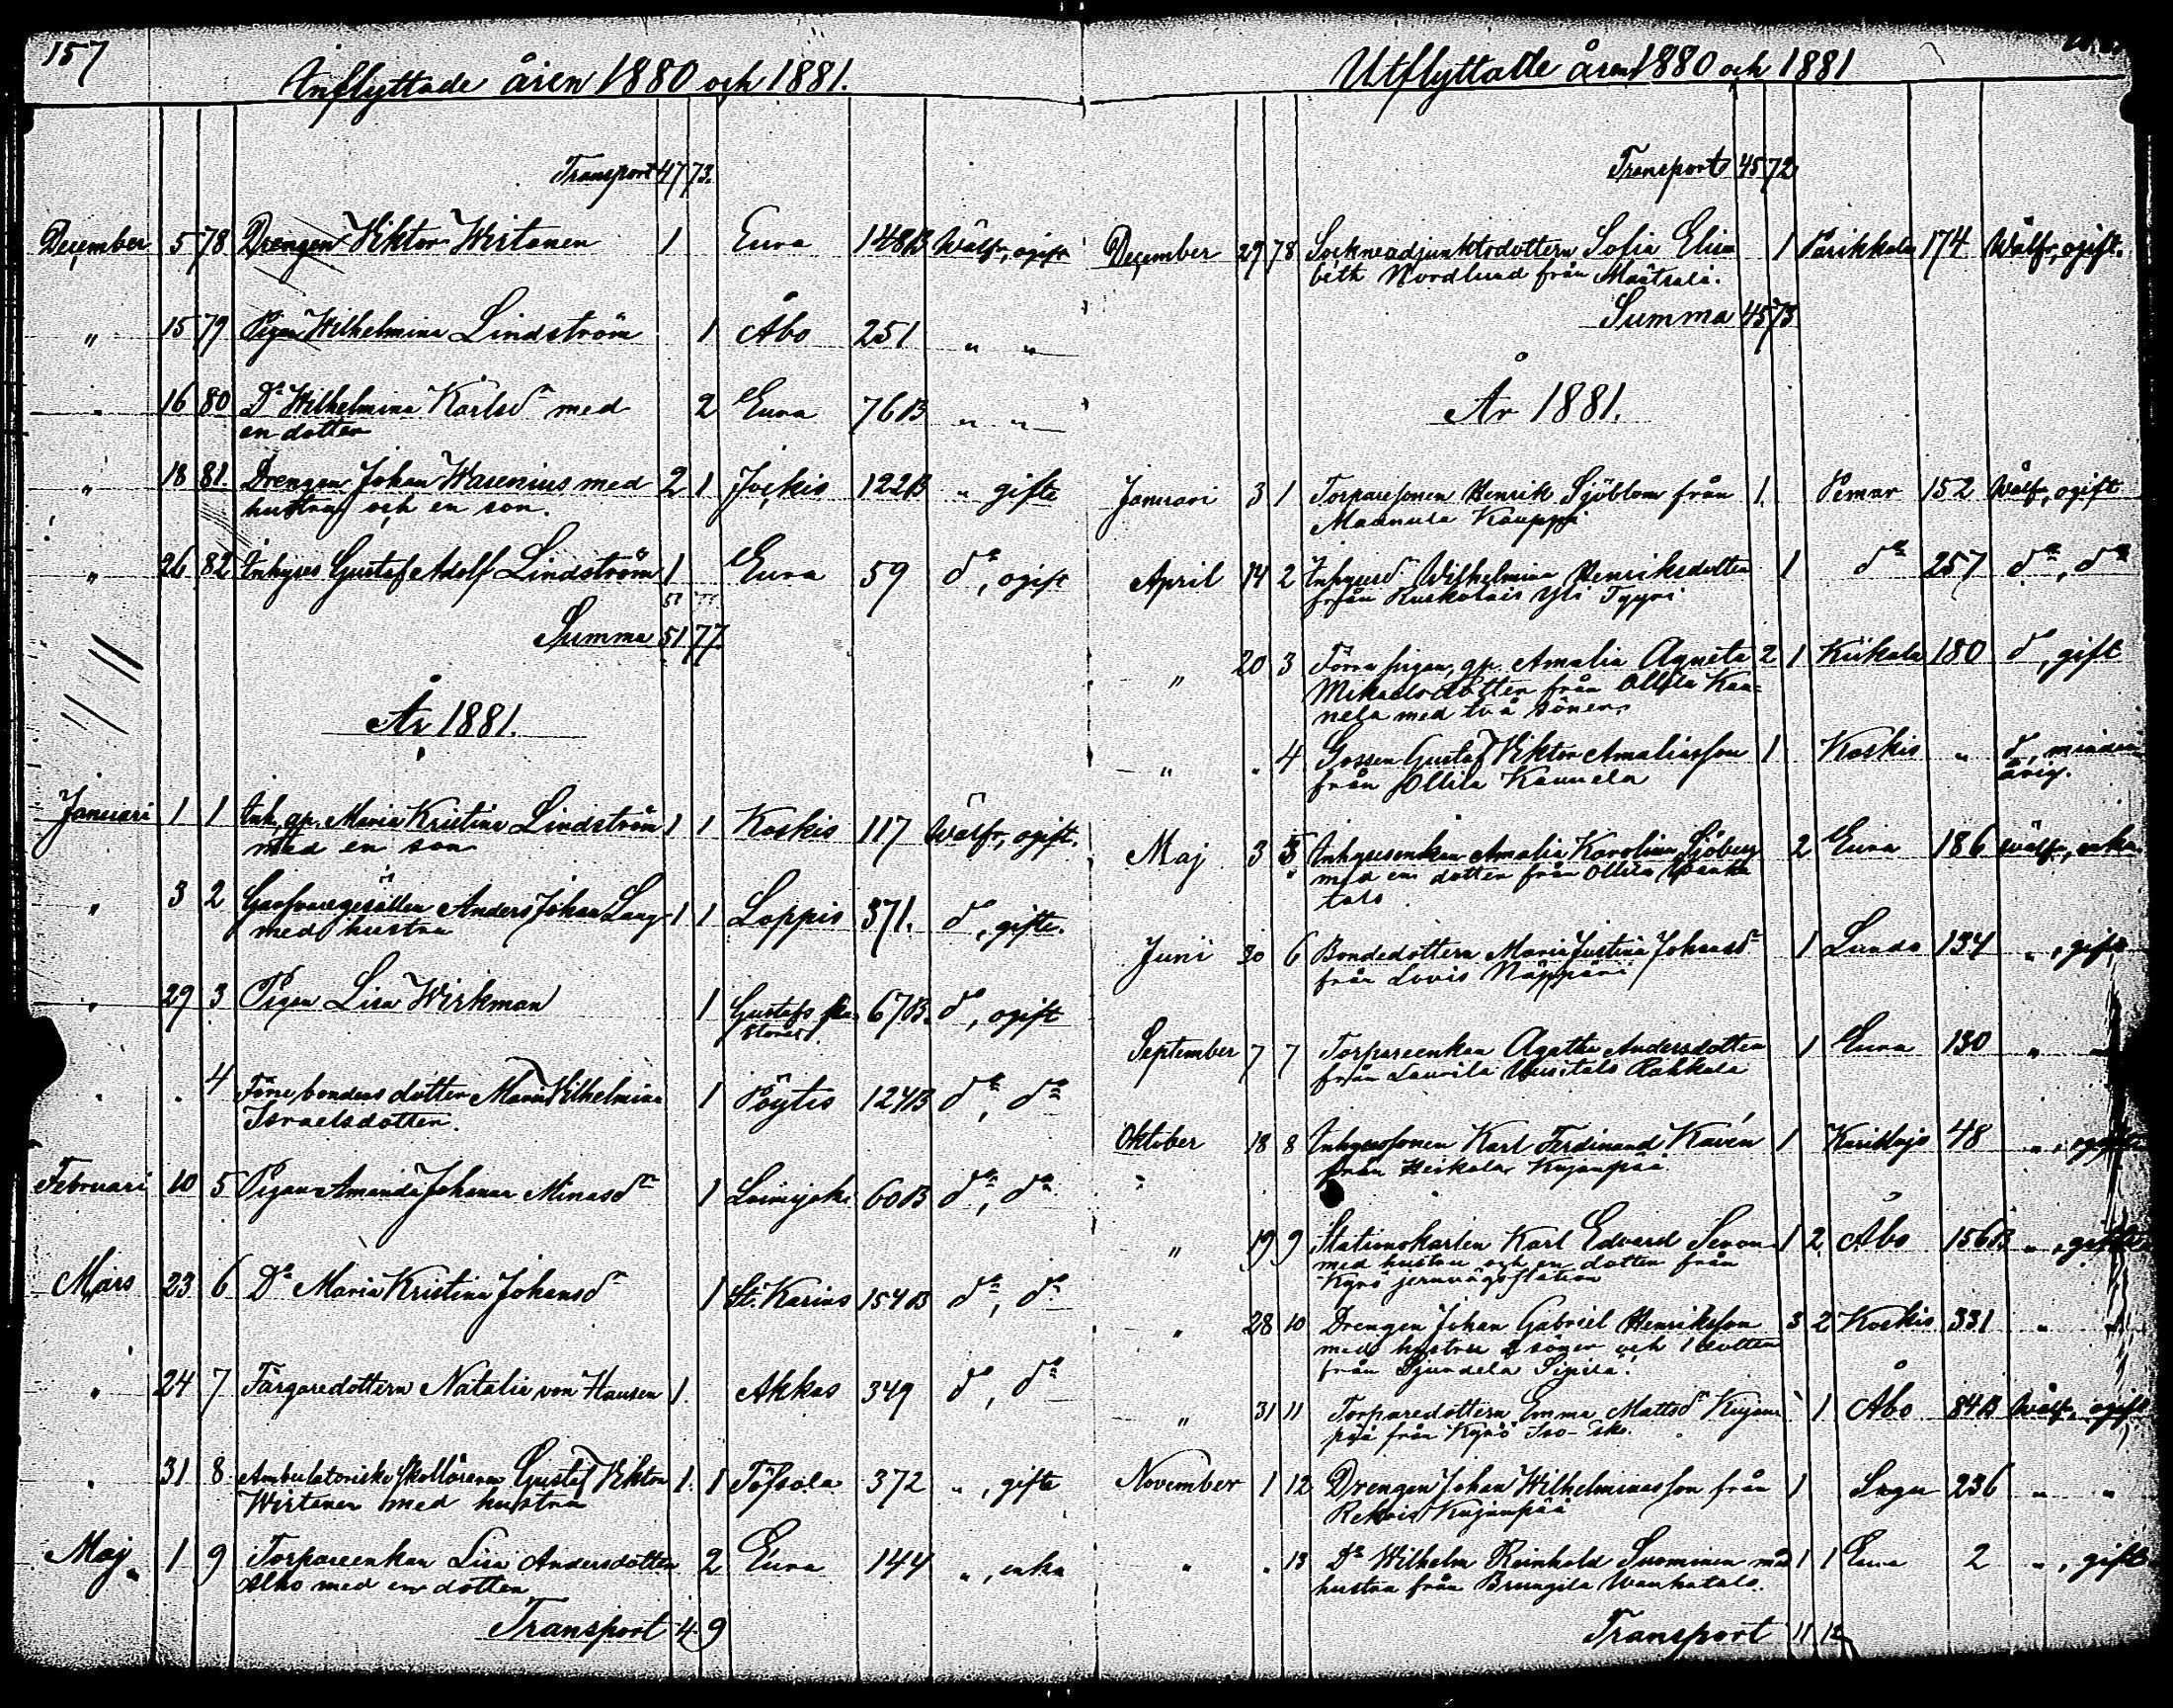 157
Inflyttade åren 1880 och 1881.
Transport 47 73.
December 5 78 Drengen Viktor Wirtanen 1 Eura 148B Wälfr, ogift
" 15 79 Pigan Wilhelmina Lindström 1 Åbo 251 " "
" 16 80 Da Wilhelmina Karlsdr med 2 Eura 76B " "
en dotter
" 18 81. Drengen Johan Warenius med 2 1 Jockis 122B " gifte
hustru och en son.
" 26 82 Inhyses Gustaf Adolf Lindström 1 Eura 59 do, ogift
51 77
Summa 51 77
År 1881.
Januari 1 1 Inh. qp. Maria Kristina Lindström 1 1 Koskis 117 Wälfr, ogift.
med en son
" 3 2 Garfvaregesällen Anders Johan Lang 1 1 Loppis 371. do, gifte.
med hustru
" 29 3 Pigan Lisa Wirkman 1 Gustafs 67B. do, ogift
" " 4 Förre bondens dotter Maria Wilhelmina 1 Pöytis 124B do, do
Israelsdotter.
Februari 10 5 Pigan Amanda Johanna Minasdr 1 Loimijoki 60B do, do
Mars 23 6 Da Maria Kristina Johansdr 1 St. Karins 154B do, do
" 24 7 Färgaredottern Natalie von Hausen 1. Akkas 349 do, do
" 31 8 Ambulatoriske skolläraren Gustaf Viktor 1. 1 Töfsala 372 ", gifte
Wirtanen med hustru
Maj 1 9 Torpareenkan Lisa Andersdotter 2 Eura 144 ", enka
Alho med en dotter
Transport 4 9
Utflyttade åren 1880 och 1881
Transport 45 72
December 29 78 Sockneadjunktsdottern Sofia Elisa 1 Parikkala 174 Wälfr, ogift.
beth Nordlund från Mäntsälä.
Summa 45 73
År 1881.
Januari 3 1 Torparesonen Henrik Sjöblom från 1. Pemar 152 Wälfr, ogift
Maanula Kauppi
April 14 2 Inhysesd Wilhelmina Henriksdotter 1 do 257 do, do
från Kuskolais Yli Tyyri
" 20 3 Förra pigan, qp. Amalia Agneta 2 1 Kiikala 180 do, gift
Mikaelsdotter från Ollila Kau-
nela med två söner.
" " 4 Gossen Gustaf Viktor Amaliasson 1 Koskis " do, minder
från Ollila Kaunela årig.
Maj 3 5 Inhysesenkan Amalia Karolina Sjöberg 2 Eura 186 Wälfr, enka
med en dotter från Ollila Wanha
talo
Juni 30 6 Bondedottern Maria Justina Johansdr 1 Lundo 134 ", gift
från Lovis Näppäri
September 7 7 Torpareenkan Agatha Andersdotter 1 Eura 130 " "
från Laurila Uusitalo Rahkala
Oktober 18 8 Inhysessonen Karl Ferdinand Kavén 1 Karislojo 48 ", ogift
från Heikola Kujanpää
" 19 9 Stationskarlen Karl Edvard Sevon 1 2 Åbo 156B ", gifte
med hustru och en dotter från
Kyrö jernvägsstation
" 28 10 Drengen Johan Gabriel Henriksson 3 2 Koskis 331 " "
med hustru 2 söner och 1 dotter
från Sjundela Sipilä.
" 31 11 Torparedottern Emma Mattsdr Kujan 1 Åbo 84B Wälfr, ogift
pää från Kyrö
November 1 12 Drengen Johan Wilhelminasson från 1 236 " "
Rekois Kujanpää
" " 13 Do Wilhelm Reinhold Suominen med 1 1 Eura 2 ", gifte
hustru från Brungila Wanhatalo.
Transport 11 12